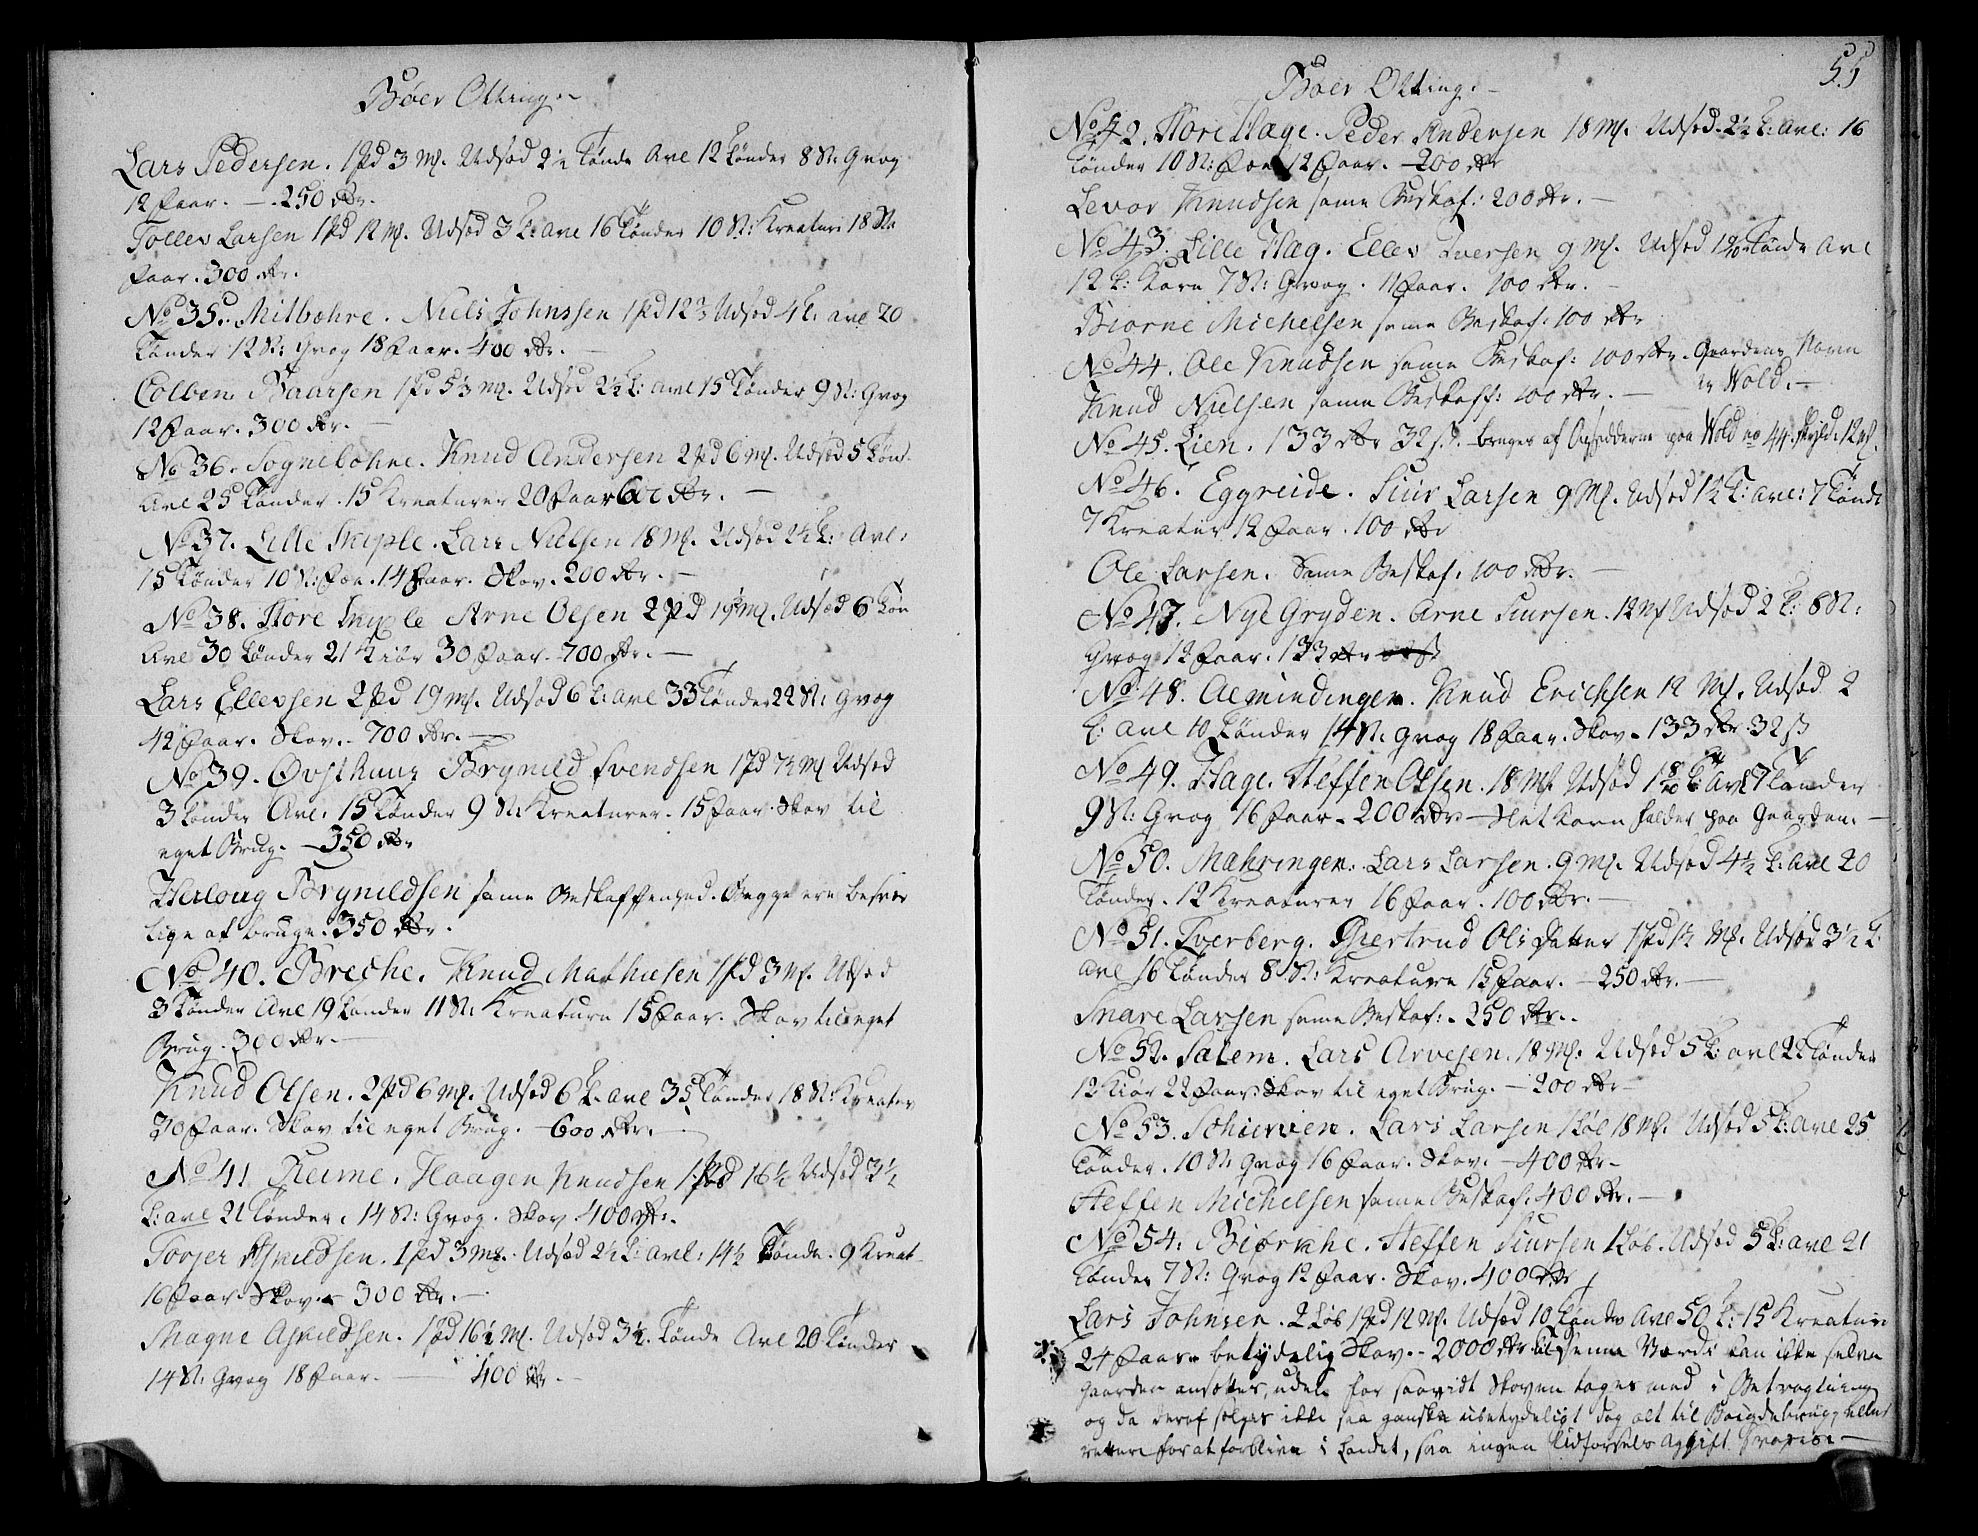 Bøer Otting.
Lars Pedersen. 1 pd 3 mf. Udsæd 2½ Tønde Avl 12 tønder 8 St: Qvæg
12 faar. — 250 rdr.
Tollev Larsen 1 pd 12 mf. Udsæd 3 t: avl 16 tønder 10 St: Kreaturi 18 St:
faar. 300 rdr.
No 35. Mitbøhre. Niels Johnssen 1 pd 12 Udsæd 4 t: avl 20
tønder 12 St: Qvæg 18 faar. 400 rdr. —
Colben Baarsen 1 pd 5½ mf. Udsæd 2½ t: avl 15 tønder 9 St: Qvæg
12 faar. 300 rdr. —
No 36. Sognebøhre. Knud Andersen 2 pd 6 mf. Udsæd 5 tønd
Avl 25 tønder. 15 Kreaturer 20 faar 600 rdr. —
No 37. Lille Skiple. Lars Nielsen 18 mf. Udsæd 2½ t: Avl:
15 tønder 10 St: føe. 14 faar. Skov. 200 rdr. —
No 38. Store Skiple Arne Olsen 2 pd 19 mf. Udsæd 6 tøn
Avl 30 tønder 21 Kiør 30 faar. 700 rdr. —
Lars Ellevsen 2 pd 19 mf. Udsæd 6 t: avl 33 tønder 22 St: Qvæg
42 faar. Skov. 700 rdr. —
No 39. Øvsthuus Brynild Svendsen 1 pd 7½ mf Udsæd
3 tønder Avl: 15 tønder 9 St: Kreaturer. 15 faar. Skov til
eget Brug. — 350 rdr
Herloug Brynildsen same Beskaffenhed. Begge ere besvær
lige at bruge. 350 rdr.
No 40. Breche. Knud Mathiesen 1 pd 3 mf. Udsæd
3 tønder Avl 19 tønder 11 St: Kreature 15 faar. Skov til eget
Brug. 300 rdr. —
Knud Olsen. 2 pd 6 mf. Udsæd 6 t. avl 35 tønder 18 St: Kreatur
30 faar. Skov til eget Brug. — 600 rdr.
No 41 Reime. Haagen Knudsen 1 pd 16½ Udsæd 3½
t: avl 21 tønder. 14 St: Qvæg. Skov. 400 rdr.
Torjer Askildsen. 1 pd 3 mf. Udsæd 2½ t: avl: 14½ tønde. 9 Kreat
16 faar. Skov. — 300 rdr. —
Magne Askildsen. 1 pd 16½ mf. Udsæd 3½ tønde Avl 20 tønder
14 St: Qvæg 18 faar. — 400 rdr. —
55
Bøer Otting. —
No 42. Store Hage. Peder Andersen 18 mf. Udsæd. 2½ t: avl: 16
tønder 10 St: føe 12 faar. — 200 rdr
Levor Knudsen same Beskaf: 200 rdr. —
No 43. Lille Hag. Ellev Iversen 9 mf. Udsæd tønde Avl
12 t: Korn 7 St: Qvæg. 11 faar. 100 rdr. —
Biorne Michelsen same Beskaf. 100 rdr
No 44. Ole Knudsen same Beskaf: 100 rdr. Gaardens Navn
er Wold. —
Knud Nielsen same Beskaff: 100 rdr. —
No 45. Lien. 133 rdr 32 s. bruges af Opsidderne paa Wold no 44. skyld. 12 mf.
No 46. Eggreide. Siur Larsen 9 mf. Udsæd 1½ t: avl: 7 tønde
7 Kreatur 12 faar. 100 rdr
Ole Larsen. Same Beskaf. 100 rdr. —
No 47. Nye Gryden. Arne Siursen. 12 mf Udsæd 2 t: 8 St:
Qvæg 12 faar. 133 rdr
No 48. Almindingen. Knud Erichsen 12 mf. Udsæd 2
t: avl 10 tønder 14 St: Qvæg 18 faar. Skov. 133 rdr. 32 s
No 49. Hage. Steffen Olsen. 18 mf Udsæd t: Avl 7 tønder
9 St: Qvæg 16 faar. 200 rdr — Slet Korn falder paa Gaarden. —
No 50. Mahringen. Lars Larsen. 9 mf. Udsæd 4½ t: avl 20
tønder. 12 Kreaturer 16 faar. 100 rdr. —
No 51. Tverberg. Giertrud Ols Datter 1 pd 1½ mf. Udsæd 3½ t:
avl 16 tønder 8 St: Kreature 15 faar. — 250 rdr. —
Snare Larsen same Beskaf: 250 rdr.
No 52. Salem. Lars Arvesen. 18 mf. Udsæd 5 t: avl 22 tønder
12 Kiør 22 faar. Skov til eget Brug. — 200 rdr —
No 53. Schierven. Lars Larsen 1 Løb 18 mf. Udsæd 5 t: avl 25
tønder. 10 St: Qvæg 16 faar. Skov. — 400 rdr —
Steffen Michelsen same Beskaf. 400 rdr. —
No 54. Biørkhe. Steffen Siursen 1 Løb. Udsæd 5 t: avl 21
tønder 7 St: Qvæg 12 faar. Skov. 400 rdr
Lars Johnsen. 2 Løb 1 pd 12 mf. Udsæd 10 tønder Avl 50 t: 15 Kreaturer
24 faar betydelig Skov. — 2000 rdr til denne Værdi kan ikke selve
gaarden ansættes, uden for saavidt Skoven tages med i Betragtning
og da deraf sælges ikke saa ganske ubetydeligt dog alt til Bøigdebrug, eller
rettere for at forblive i Landet, saa ingen Udførsels Afgift svares —